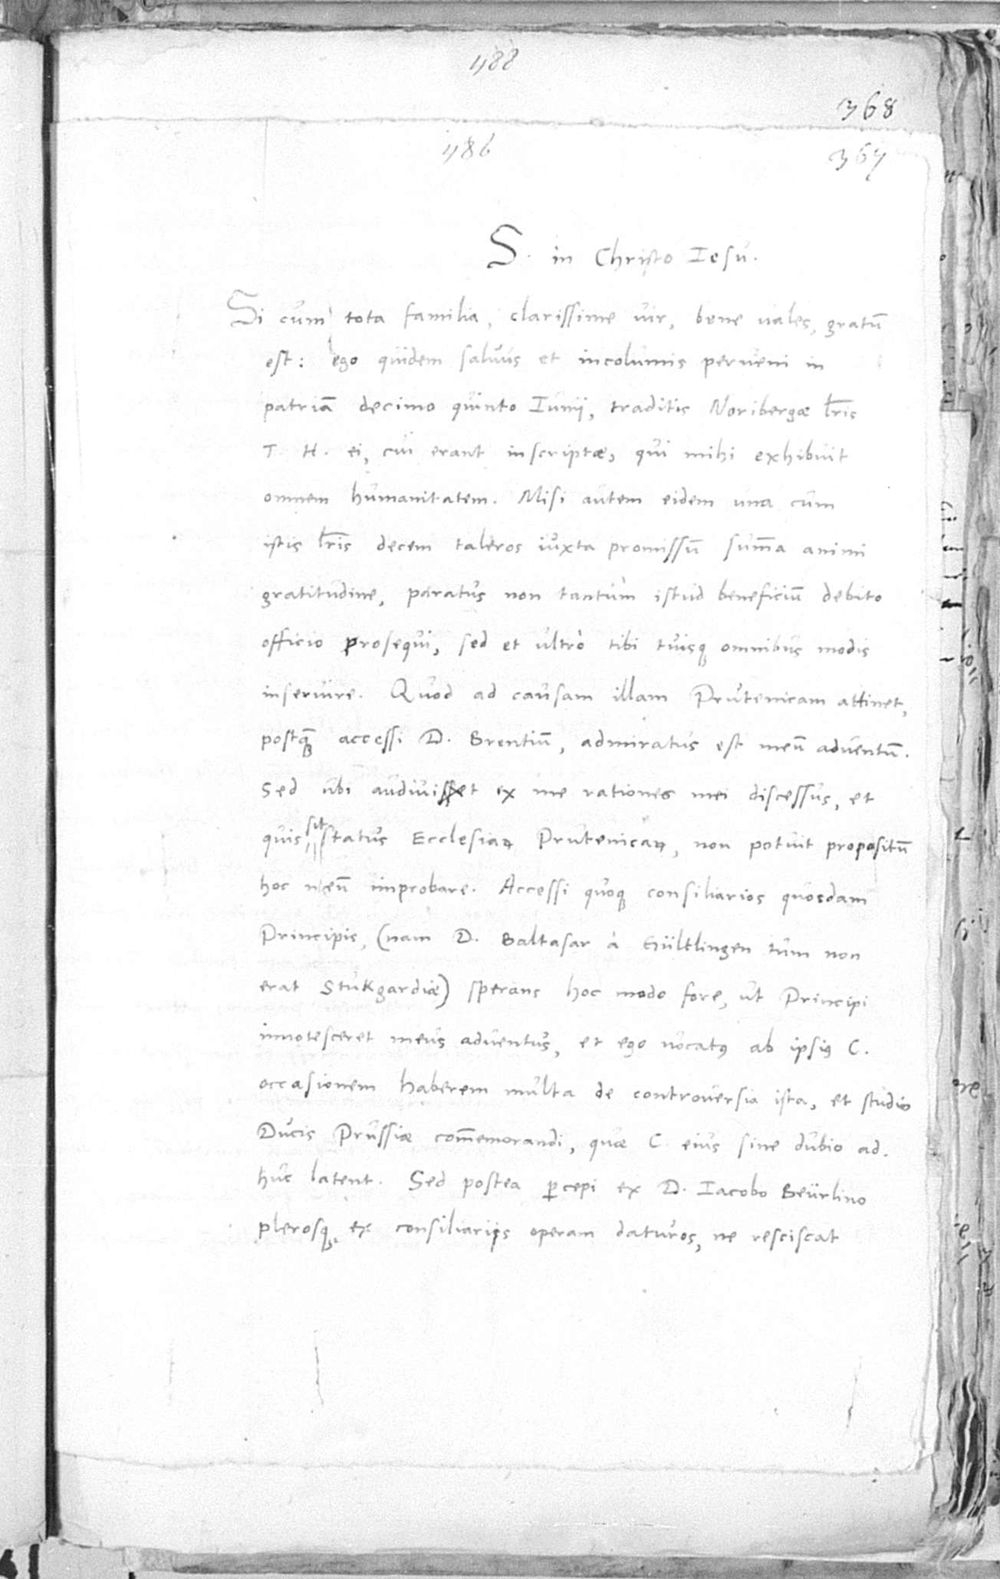 488
368
486
367
S. in Christo Iesu.
Si cum tota familia, clarissime vir, bene vales, gratū
est: ego quidem saluus et incolumis perueni in
patriā decimo quinto Iunij, traditis Noribergæ lr̄is
T. H. ei, cui erant inscriptæ, qui mihi exhibuit
omnem humanitatem. Misi autem eidem una cum
istis lr̄is decem taleros iuxta promissū sum̄a animi
gratitudine, paratus non tantum istud beneficiū debito
officio prosequi, sed et ultrò tibi tuisq; omnibus modis
inseruire. Quod ad causam illam Prutenicam attinet,
postq̄ accessi D. Brentiū, admiratus est meū aduentū.
Sed ubi audiuisset ex me rationes mei discessus, et
quis sit status Ecclesiaꝝ Prutenicaꝝ, non potuit propositū
hoc meū improbare. Accessi quoq; consiliarios quosdam
Principis, (nam D. Baltasar à Gültlingen tum non
erat Stukgardiæ) sperans hoc modo fore, ut Principi
innotesceret meus aduentus, et ego uocatꝰ ab ipsiꝰ C.
occasionem haberem multa de controuersia ista, et studio
Ducis Prussiæ com̄emorandi, quæ C. eius sine dubio ad-
huc latent. Sed postea ꝑcepi ex D. Iacobo Beürlino
plerosq; ex consiliarijs operam daturos, ne resciscat